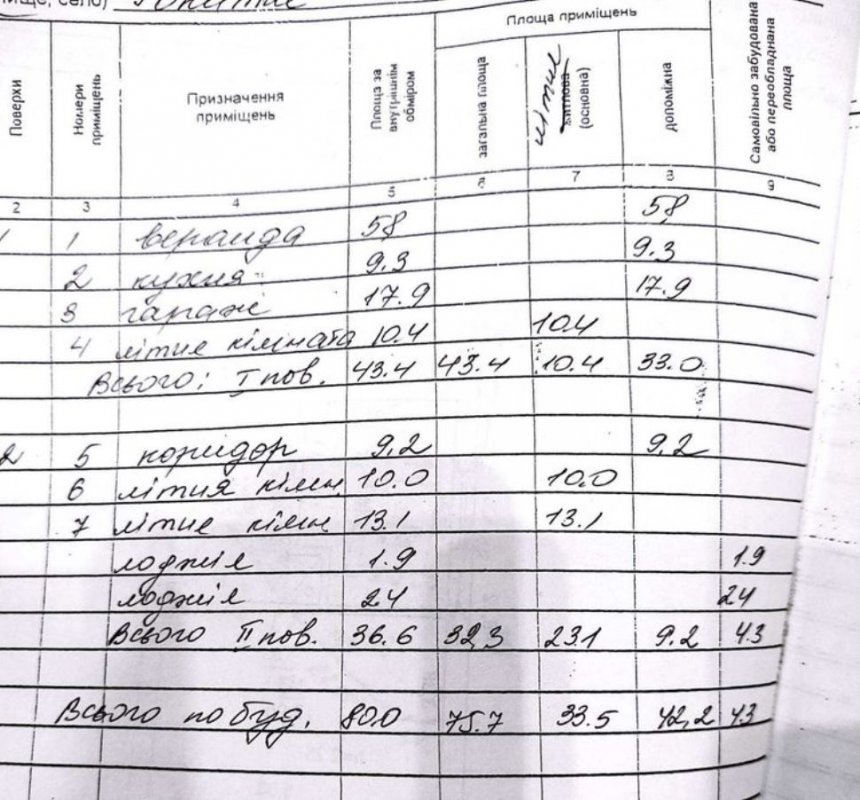 село)
Площа приміщень
Поверхи
Номери приміщень
Призначення приміщень
Площа за внутрішнім обміром
загальна площа
літние житлова (основна)
допоміжна
Самовільно забудована або переобладнана площа
2 3 4 5 6 7 8 9
1 1 веранда 58 58
2 кухня 9.3 9.3
3 гараж 17.9 17.9
4 літне кімната 10.4 10.4
Всього: I пов. 43.4 43.4 10.4 33.0
2 5 коридор 9.2 9.2
6 літня кімн. 10.0 10.0
7 літне кімн 13.1 13.1
лоджія 1.9 1.9
лоджія 24 24
Всього II пов. 36.6 32,3 231 9.2 43
Всього по буд. 800 75.7 33.5 42,2 43